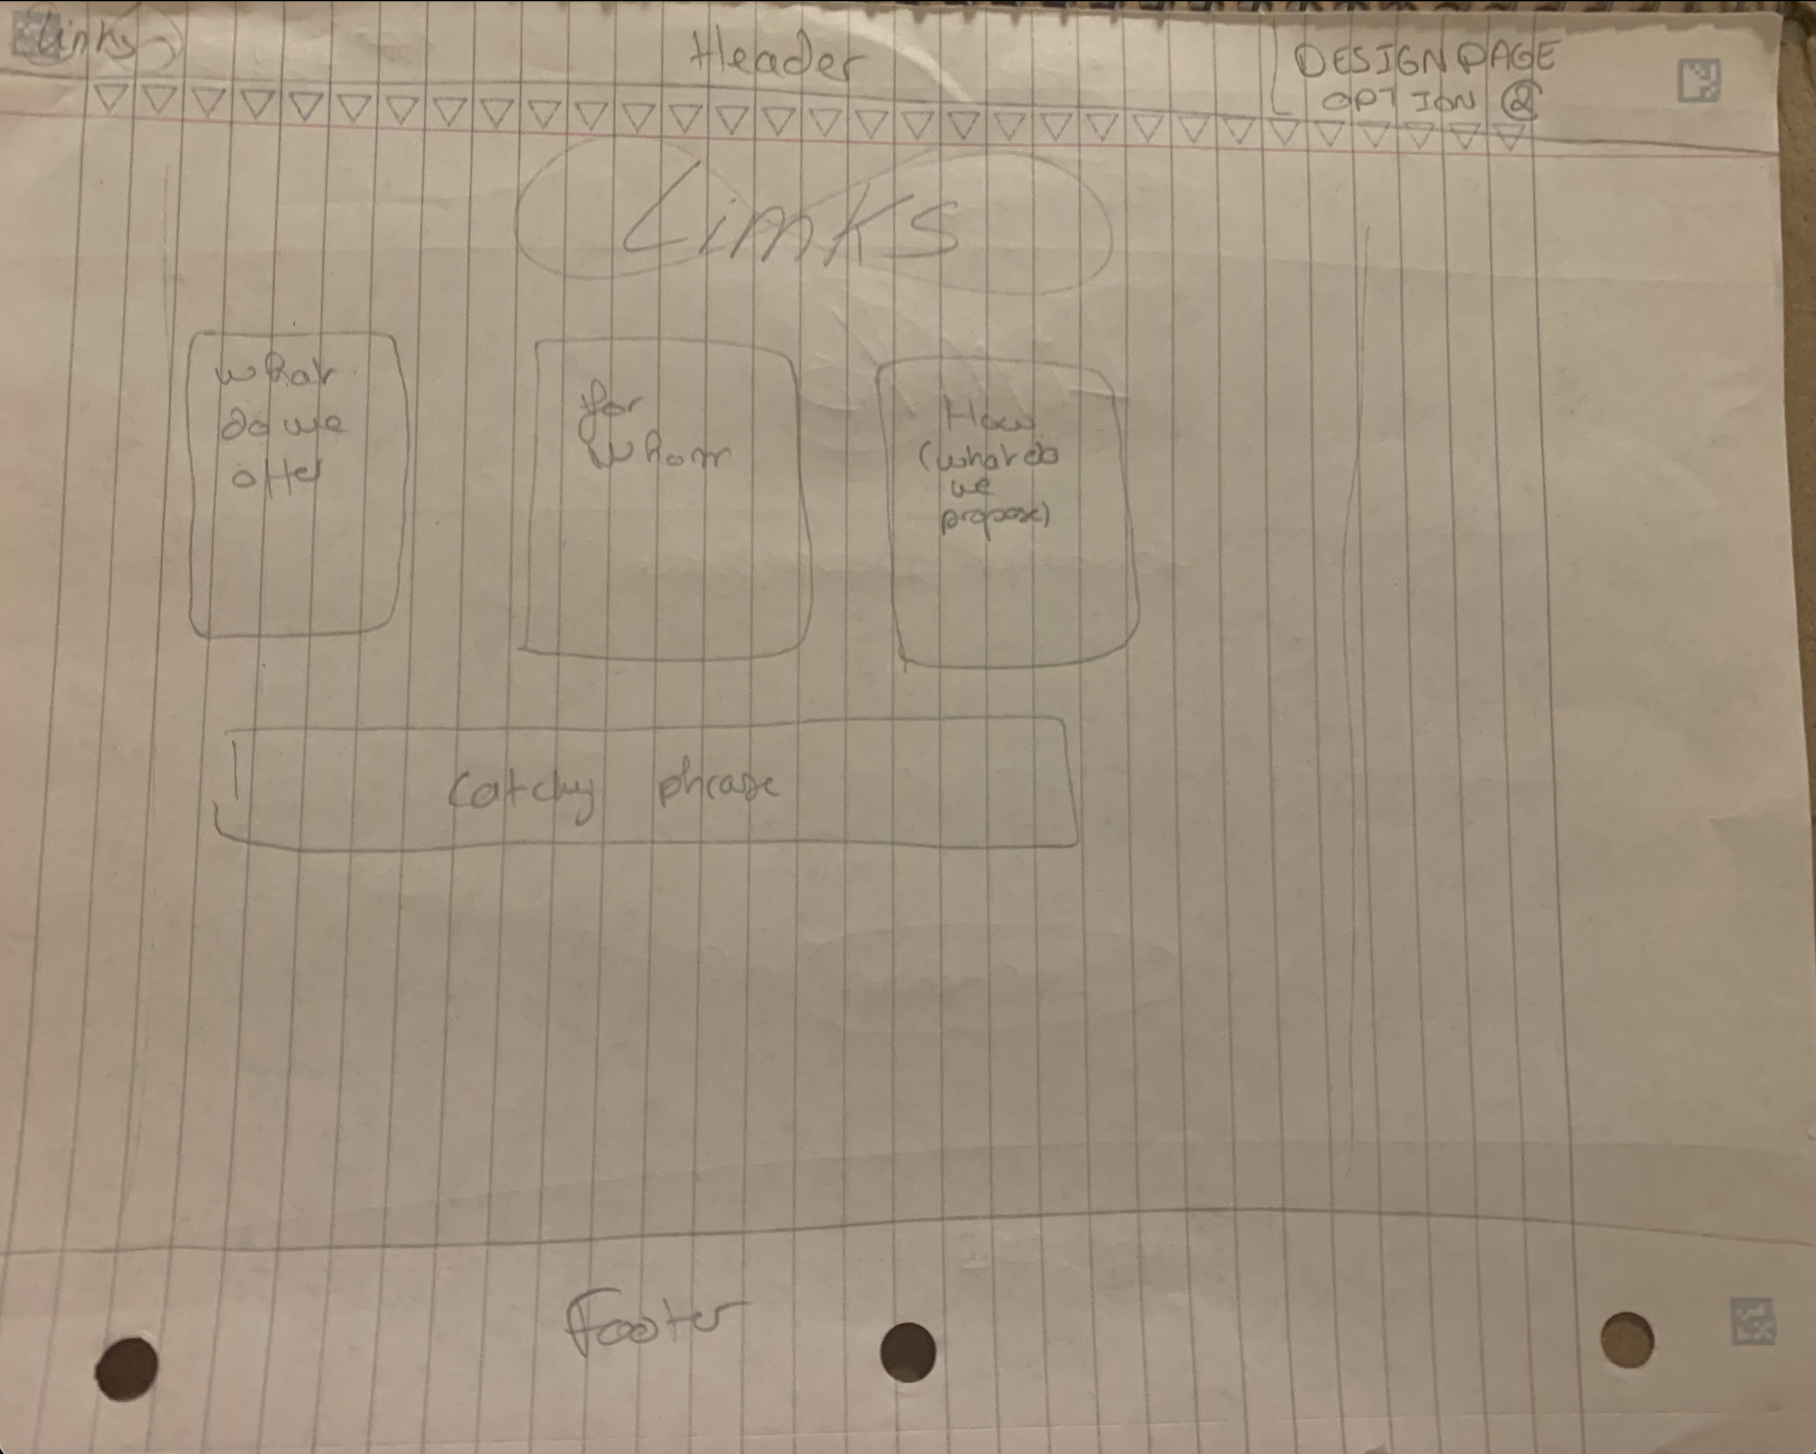 Links
Header
DESIGN PAGE
OPTION 2
Links
What
do we
offer
for
whom
How
(what do
we
propose)
Catchy phrase
Footer